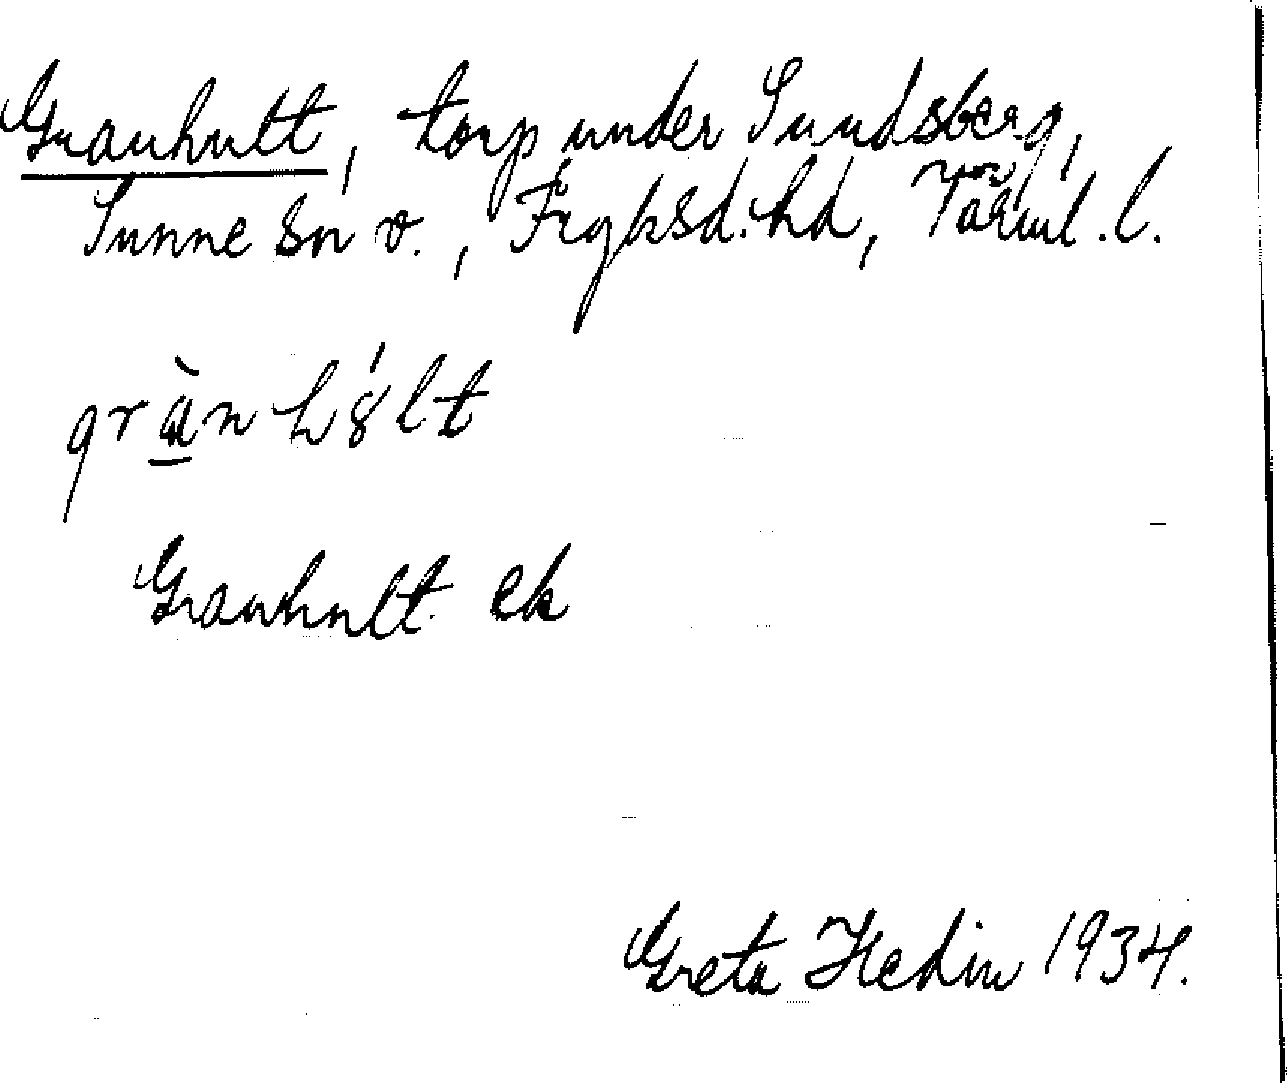 Granhult, torp under Sundsberg,
Sunne sn v., Fryksd. hd, Värml. l.
grànhʹ8lt
Granhult ek
Greta Hedin 1934.